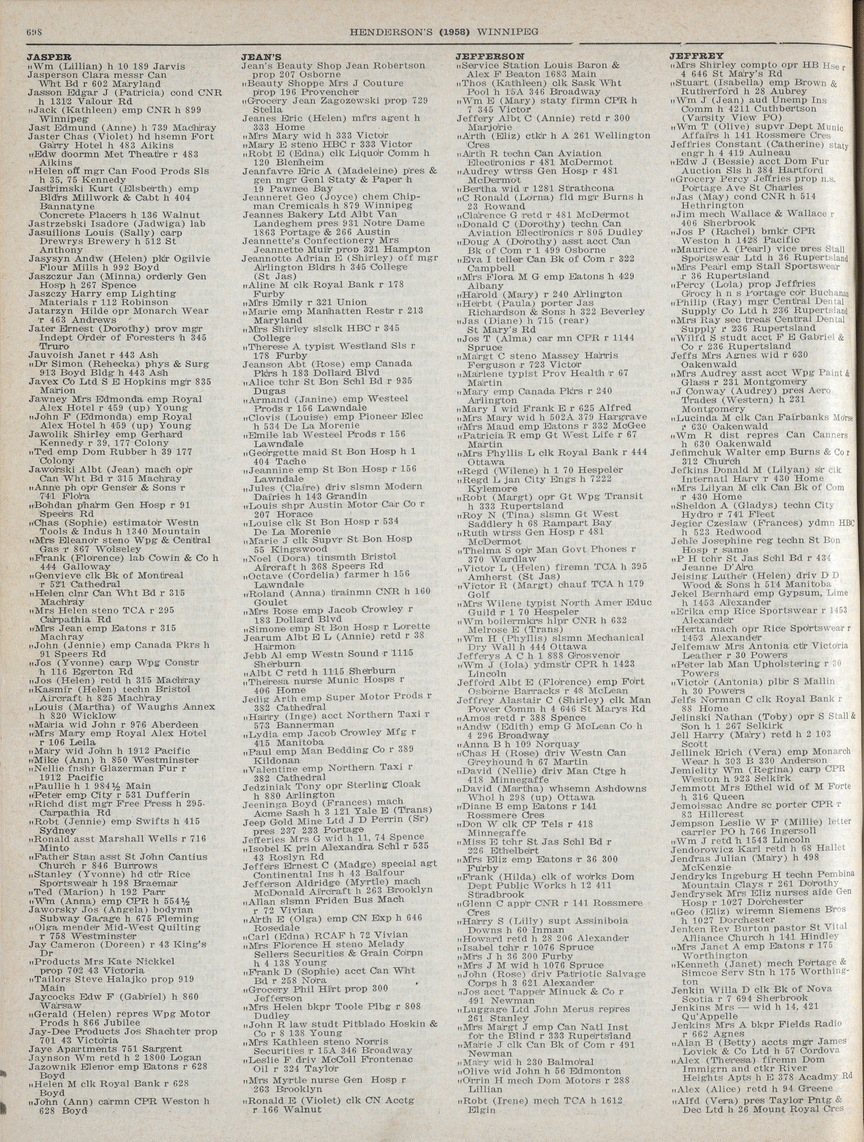 698
HENDERSON'S (1958) WINNIPEG
JASPER
"Wm (Lillian) h 10 189 Jarvis
Jasperson Clara messr Can
Wht Bd r 602 Maryland
Jasson Edgar J (Patricia) cond CNR
h 1312 Valour Rd
"Jack (Kathleen) emp CNR h 899
Winnipeg
Jast Edmund (Anne) h 739 Machray
Jaster Chas (Violet) hd hsemn Fort
Garry Hotel h 483 Aikins
"Edw doormn Met Theatre r 483
Aikins
"Helen off mgr Can Food Prods Sls
h 35, 75 Kennedy
Jastrimski Kurt (Elsberth) emp
Bldrs Millwork & Cabt h 404
Bannatyne
Concrete Placers h 136 Walnut
Jastrzebski Isadore (Jadwiga) lab
Jasullions Louis (Sally) carp
Drewrys Brewery h 512 St
Anthony
Jasysyn Andw (Helen) pkr Ogilvie
Flour Mills h 992 Boyd
Jaszczur Jan (Minna) orderly Gen
Hosp h 267 Spence
Jaszczy Harry emp Lighting
Materials r 112 Robinson
Jatarzyn Hilde opr Monarch Wear
r 463 Andrews
Jater Ernest (Dorothy) prov mgr
Indept Order of Foresters h 345
Truro
Jauvoish Janet r 443 Ash
"Dr Simon (Rebecka) phys & Surg
913 Boyd Bldg h 443 Ash
Javex Co Ltd S E Hopkins mgr 835
Marion
Jawney Mrs Edmonda emp Royal
Alex Hotel r 459 (up) Young
"John F (Edmonda) emp Royal
Alex Hotel h 459 (up) Young
Jawolik Shirley emp Gerhard
Kennedy r 39, 177 Colony
"Ted emp Dom Rubber h 39 177
Colony
Jaworski Albt (Jean) mach opr
Can Wht Bd r 315 Machray
"Anne ph opr Genser & Sons r
741 Flora
"Bohdan pharm Gen Hosp r 91
Speers Rd
"Chas (Sophie) estimator Westn
Tools & Indus h 1340 Mountain
"Mrs Eleanor steno Wpg & Central
Gas r 867 Wolseley
"Frank (Florence) lab Cowin & Co h
444 Galloway
"Genvieve clk Bk of Montreal
r 521 Cathedral
"Helen clnr Can Wht Bd r 315
Machray
"Mrs Helen steno TCA r 295
Carpathia Rd
"Mrs Jean emp Eatons r 315
Machray
"John (Jennie) emp Canada Pkrs h
91 Speers Rd
"Jos (Yvonne) carp Wpg Constr
h 116 Egerton Rd
"Jos (Helen) retd h 315 Machray
"Kasmir (Helen) techn Bristol
Aircraft h 825 Machray
"Louis (Martha) of Waughs Annex
h 820 Wicklow
"Maria wid John r 976 Aberdeen
"Mrs Mary emp Royal Alex Hotel
r 106 Leila
"Mary wid John h 1912 Pacific
"Mike (Ann) h 850 Westminster
"Nellie fnshr Glazerman Fur r
1912 Pacific
"Paullie h 1 984½ Main
"Peter emp City r 531 Dufferin
"Richd dist mgr Free Press h 295
Carpathia Rd
"Robt (Jennie) emp Swifts h 415
Sydney
"Ronald asst Marshall Wells r 716
Minto
"Father Stan asst St John Cantius
Church r 846 Burrows
"Stanley (Yvonne) hd ctr Rice
Sportswear h 198 Braemar
"Ted (Marion) h 192 Parr
"Wm (Anna) emp CPR h 554½
Jaworsky Jos (Angela) bodymn
Subway Garage h 675 Fleming
"Olga mender Mid-West Quilting
r 758 Westminster
Jay Cameron (Doreen) r 43 King's
Dr
"Products Mrs Kate Nickkel
prop 702 43 Victoria
"Tailors Steve Halajko prop 919
Main
Jaycocks Edw F (Gabriel) h 860
Warsaw
"Gerald (Helen) repres Wpg Motor
Prods h 866 Jubilee
Jay-Dee Products Jos Shachter prop
701 43 Victoria
Jaye Apartments 751 Sargent
Jaynson Wm retd h 2 1800 Logan
Jazownik Elenor emp Eatons r 628
Boyd
"Helen M clk Royal Bank r 628
Boyd
"John (Ann) carmn CPR Weston h
628 Boyd
JEAN'S
Jean's Beauty Shop Jean Robertson
prop 207 Osborne
"Beauty Shoppe Mrs J Couture
prop 196 Provencher
"Grocery Jean Zagozewski prop 729
Stella
Jeanes Eric (Helen) mfrs agent h
333 Home
"Mrs Mary wid h 333 Victor
"Mary E steno HBC r 333 Victor
"Robt E (Edna) clk Liquor Comm h
120 Blenheim
Jeanfavre Eric A (Madeleine) pres &
gen mgr Genl Staty & Paper h
19 Pawnee Bay
Jeanneret Geo (Joyce) chem Chip-
man Chemicals h 879 Winnipeg
Jeannes Bakery Ltd Albt Van
Landeghem pres 931 Notre Dame
1863 Portage & 266 Austin
Jeannette's Confectionery Mrs
Jeannette Muir prop 321 Hampton
Jeannotte Adrian E (Shirley) off mgr
Arlington Bldrs h 345 College
(St Jas)
"Aline M clk Royal Bank r 178
Furby
"Mrs Emily r 321 Union
"Marie emp Manhatten Restr r 213
Maryland
"Mrs Shirley slsclk HBC r 345
College
"Therese A typist Westland Sls r
178 Furby
Jeanson Abt (Rose) emp Canada
Pkrs h 183 Dollard Blvd
"Alice tchr St Bon Schl Bd r 935
Dugas
"Armand (Janine) emp Westeel
Prods r 156 Lawndale
"Clovis (Louise) emp Pioneer Elec
h 534 De La Morenie
"Emile lab Westeel Prods r 156
Lawndale
"Georgette maid St Bon Hosp h 1
404 Tache
"Jeannine emp St Bon Hosp r 156
Lawndale
"Jules (Claire) driv slsmn Modern
Dairies h 143 Grandin
"Louis shpr Austin Motor Car Co r
207 Horace
"Louise clk St Bon Hosp r 534
De La Morenie
"Marie J clk Supvr St Bon Hosp
55 Kingswood
"Noel (Dora) tinsmth Bristol
Aircraft h 368 Speers Rd
"Octave (Cordelia) farmer h 156
Lawndale
"Roland (Anna) trainmn CNR h 160
Goulet
"Mrs Rose emp Jacob Crowley r
183 Dollard Blvd
"Simone emp St Bon Hosp r Lorette
Jearum Albt E L (Annie) retd r 38
Harmon
Jebb Al emp Westn Sound r 1115
Sherburn
"Albt C retd h 1115 Sherburn
"Theresa nurse Munic Hosps r
406 Home
Jedig Arth emp Super Motor Prods r
382 Cathedral
"Harry (Inge) acct Northern Taxi r
573 Bannerman
"Lydia emp Jacob Crowley Mfg r
415 Manitoba
"Paul emp Man Bedding Co r 389
Kildonan
"Valentine emp Northern Taxi r
382 Cathedral
Jedziniak Tony opr Sterling Cloak
h 880 Arlington
Jeeninga Boyd (Frances) mach
Acme Sash h 3 121 Yale E (Trans)
Jeep Gold Mine Ltd J D Perrin (Sr)
pres 237 233 Portage
Jefferies Mrs G wid h 11, 74 Spence
"Isobel K prin Alexandra Schl r 535
43 Roslyn Rd
Jeffers Ernest C (Madge) special agt
Continental Ins h 43 Balfour
Jefferson Aldridge (Myrtle) mach
McDonald Aircraft h 263 Brooklyn
"Allan slsmn Friden Bus Mach
r 72 Vivian
"Arth E (Olga) emp CN Exp h 646
Rosedale
"Carl (Edna) RCAF h 72 Vivian
"Mrs Florence H steno Melady
Sellers Securities & Grain Corpn
h 4 138 Young
"Frank D (Sophie) acct Can Wht
Bd r 258 Nora
"Grocery Phil Hirt prop 300
Jefferson
"Mrs Helen bkpr Toole Plbg r 808
Dudley
"John R law studt Pitblado Hoskin &
Co r 8 138 Young
"Mrs Kathleen steno Norris
Securities r 15A 346 Broadway
"Leslie F driv McColl Frontenac
Oil r 324 Taylor
"Mrs Myrtle nurse Gen Hosp r
263 Brooklyn
"Ronald E (Violet) clk CN Acctg
r 166 Walnut
JEFFERSON
"Service Station Louis Baron &
Alex F Beaton 1683 Main
"Thos (Kathleen) clk Sask Wht
Pool h 15A 346 Broadway
"Wm E (Mary) staty firmn CPR h
7 345 Victor
Jeffery Albt C (Annie) retd r 300
Marjorie
"Arth (Eliz) ctkr h A 261 Wellington
Cres
"Arth R techn Can Aviation
Electronics r 481 McDermot
"Audrey wtrss Gen Hosp r 481
McDermot
"Bertha wid r 1281 Strathcona
"C Ronald (Lorna) fld mgr Burns h
23 Rowand
"Clarence G retd r 481 McDermot
"Donald C (Dorothy) techn Can
Aviation Electronics r 805 Dudley
"Doug A (Dorothy) asst acct Can
Bk of Com r 1 499 Osborne
"Eva I teller Can Bk of Com r 322
Campbell
"Mrs Flora M G emp Eatons h 429
Albany
"Harold (Mary) r 240 Arlington
"Herbt (Paula) porter Jas
Richardson & Sons h 322 Beverley
"Jas (Diane) h 715 (rear)
St Mary's Rd
"Jos T (Alma) car mn CPR r 1144
Spruce
"Margt C steno Massey Harris
Ferguson r 723 Victor
"Marlene typist Prov Health r 67
Martin
"Mary emp Canada Pkrs r 240
Arlington
"Mary I wid Frank E r 625 Alfred
"Mrs Mary wid h 502A 379 Hargrave
"Mrs Maud emp Eatons r 332 McGee
"Patricia R emp Gt West Life r 67
Martin
"Mrs Phyllis L clk Royal Bank r 444
Ottawa
"Regd (Wilene) h 1 70 Hespeler
"Regd L jan City Engs h 7222
Kylemore
"Robt (Margt) opr Gt Wpg Transit
h 333 Rupertsland
"Roy N (Tina) slsmn Gt West
Saddlery h 68 Rampart Bay
"Ruth wtrss Gen Hosp r 481
McDermot
"Thelma S opr Man Govt Phones r
370 Wardlaw
"Victor L (Helen) firemn TCA h 395
Amherst (St Jas)
"Victor R (Margt) chauf TCA h 179
Golf
"Mrs Wilene typist North Amer Educ
Guild r 1 70 Hespeler
"Wm boilermkrs hlpr CNR h 632
Melrose E (Trans)
"Wm H (Phyllis) slsmn Mechanical
Dry Wall h 444 Ottawa
Jefferys A C h 1 888 Grosvenor
"Wm J (Iola) ydmstr CPR h 1423
Lincoln
Jefford Albt E (Florence) emp Fort
Osborne Barracks r 48 McLean
Jeffrey Alastair C (Shirley) clk Man
Power Comm h 4 646 St Marys Rd
"Amos retd r 388 Spence
"Andw (Edith) emp G McLean Co h
4 296 Broadway
"Anna B h 109 Norquay
"Chas H (Rose) driv Westn Can
Greyhound h 67 Martin
"David (Nellie) driv Man Ctge h
418 Minnegaffe
"David (Martha) whsemn Ashdowns
Whol h 298 (up) Ottawa
"Diane B emp Eatons r 141
Rossmere Cres
"Don W clk CP Tels r 418
Minnegaffe
"Miss E tchr St Jas Schl Bd r
226 Ethelbert
"Mrs Eliz emp Eatons r 36 300
Furby
"Frank (Hilda) clk of works Dom
Dept Public Works h 12 411
Stradbrook
"Glenn C appr CNR r 141 Rossmere
Cres
"Harry S (Lilly) supt Assiniboia
Downs h 60 Inman
"Howard retd h 28 206 Alexander
"Isabel tchr r 1076 Spruce
"Mrs J h 36 300 Furby
"Mrs J M wid h 1076 Spruce
"John (Rose) driv Patriotic Salvage
Corps h 3 621 Alexander
"Jos acct Tapper Minuck & Co r
491 Newman
"Luggage Ltd John Merus repres
261 Stanley
"Mrs Margt J emp Can Natl Inst
for the Blind r 333 Rupertsland
"Marie J clk Can Bk of Com r 491
Newman
"Mary wid h 230 Balmoral
"Olive wid John h 56 Edmonton
"Orrin H mech Dom Motors r 288
Lillian
"Robt (Irene) mech TCA h 1612
Elgin
JEFFREY
"Mrs Shirley compto opr HB Hse r
4 646 St Mary's Rd
"Stuart (Isabella) emp Brown &
Rutherford h 28 Aubrey
"Wm J (Jean) aud Unemp Ins
Comm h 4211 Cuthbertson
(Varsity View PO)
"Wm T (Olive) supvr Dept Munic
Affairs h 141 Rossmere Cres
Jeffries Constant (Catherine) staty
engr h 419 Aulneau
"Edw J (Bessie) acct Dom Fur
Auction Sls h 384 Hartford
"Grocery Percy Jeffries prop n.s.
Portage Ave St Charles
"Jas (May) cond CNR h 514
Hethrington
"Jim mech Wallace & Wallace r
406 Sherbrook
"Jos P (Rachel) bmkr CPR
Weston h 1428 Pacific
"Maurice A (Pearl) vice pres Stall
Sportswear Ltd h 36 Rupertsland
"Mrs Pearl emp Stall Sportswear
r 36 Rupertsland
"Percy (Lola) prop Jeffries
Grocy h n s Portage cor Buchanan
"Philip (Ray) mgr Central Dental
Supply Co Ltd h 236 Rupertsland
"Mrs Ray sec treas Central Dental
Supply r 236 Rupertsland
"Wilfd S studt acct F E Gabriel &
Co r 236 Rupertsland
Jeffs Mrs Agnes wid r 630
Oakenwald
"Mrs Audrey asst acct Wpg Paint &
Glass r 231 Montgomery
"J Conway (Audrey) pres Aero
Trades (Western) h 231
Montgomery
"Lucinda M clk Can Fairbanks Morse
r 630 Oakenwald
"Wm R dist repres Can Canners
h 630 Oakenwald
Jefimchuk Walter emp Burns & Co r
312 Church
Jefkins Donald M (Lilyan) sr clk
Internatl Harv r 430 Home
"Mrs Lilyan M clk Can Bk of Com
r 430 Home
"Sheldon A (Gladys) techn City
Hydro r 741 Fleet
Jegier Czeslaw (Frances) ydmn HBC
h 523 Redwood
Jehle Josephine reg techn St Bon
Hosp r same
"P H tchr St Jas Schl Bd r 434
Jeanne D'Arc
Jeising Luther (Helen) driv D D
Wood & Sons h 514 Manitoba
Jekel Bernhard emp Gypsum, Lime
h 1453 Alexander
"Erika emp Rice Sportswear r 1453
Alexander
"Herta mach opr Rice Sportswear r
1453 Alexander
Jelfemaw Mrs Antonia ctr Victoria
Leather r 30 Powers
"Peter lab Man Upholstering r 30
Powers
"Victor (Antonia) plbr S Mallin
h 30 Powers
Jelfs Norman C clk Royal Bank r
88 Home
Jelinski Nathan (Toby) opr S Stall &
Son h 1 267 Selkirk
Jell Harry (Mary) retd h 2 103
Scott
Jellinek Erich (Vera) emp Monarch
Wear h 303 B 330 Anderson
Jemielity Wm (Regina) carp CPR
Weston h 923 Selkirk
Jemmott Mrs Ethel wid of M Forte
h 316 Queen
Jemoissac Andre sc porter CPR r
83 Hillcrest
Jempson Leslie W F (Millie) letter
carrier PO h 766 Ingersoll
"Wm J retd h 1543 Lincoln
Jendorowicz Karl retd h 68 Hallet
Jendras Julian (Mary) h 498
McKenzie
Jendryks Ingeburg H techn Pembina
Mountain Clays r 261 Dorothy
Jendrysek Mrs Eliz nurses aide Gen
Hosp r 1027 Dorchester
"Geo (Eliz) wiremn Siemens Bros
h 1027 Dorchester
Jenken Rev Burton pastor St Vital
Alliance Church h 141 Hindley
"Mrs Janet A emp Eatons r 175
Worthington
"Kenneth (Janet) mech Portage &
Simcoe Serv Stn h 175 Worthing-
ton
Jenkin Willa D clk Bk of Nova
Scotia r 7 694 Sherbrook
Jenkins Mrs — wid h 14, 421
Qu'Appelle
Jenkins Mrs A bkpr Fields Radio
r 662 Agnes
"Alan B (Betty) accts mgr James
Lovick & Co Ltd h 57 Cordova
"Alex (Theresa) firemn Dom
Immigrn and ctkr River
Heights Apts h E 378 Acadmy Rd
"Alex (Alice) retd h 94 Greene
"Alfd (Vera) pres Taylor Ptng &
Dec Ltd h 26 Mount Royal Cres